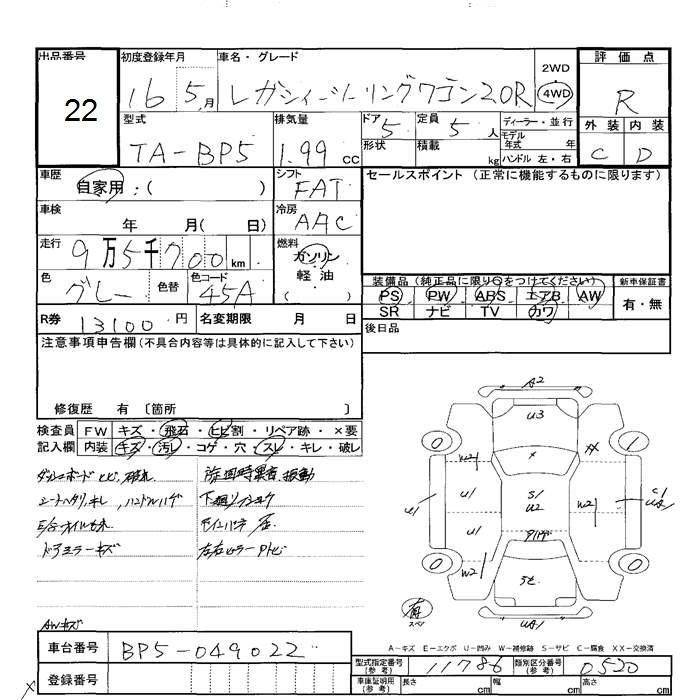 出品番号 初度登録年月 車名・グレード 評価点
22 16 5月 レガシィツーリングワゴン2.0R 2WD 4WD R
型式 排気量 ドア 5 定員 5人 ディーラー・並行 外装 内装
TA-BP5 1.99cc 形状 積載 kg モデル年式 年 C D
ハンドル 左・右
車歴 自家用:( ) シフト FAT セールスポイント(正常に機能するものに限ります)
車検 年 月( 日) 冷房 AAC
走行 9万5千700km 燃料 ガソリン 軽油 ( )
色 グレー 色替 色コード 45A
装備品(純正品に限り○をつけてください) 新車保証書
PS PW ABS エアB AW 有・無
SR ナビ TV カワ
R券 13100円 名変期限 月 日 後日品
注意事項申告欄(不具合内容等は具体的に記入して下さい)
修復歴 有〔箇所 〕
検査員 FW キズ・飛石・ヒビ割・リペア跡・×要
記入欄 内装 キズ・汚レ・コゲ・穴・スレ・キレ・破レ
ダッシュボードヒビ、破れ
シートヘタリ、キレ、ハンドルハゲ
E/Gオイルもれ
ドアミラーキズ
AWキズ
旋回時異音、振動
A2
U3
0 1
XX
W2
U1 U1 S1 U2 W2 C1
U1
W2
0 0
有
UA1
A-キズ E-エクボ U-凹み W-補修跡 S-サビ C-腐食 XX-交換済
車台番号 BP5-049022
登録番号
型式指定番号(参考) 11786 類別区分番号(参考) 0520
車庫証明用(参考) 長さ cm 幅 cm 高さ cm